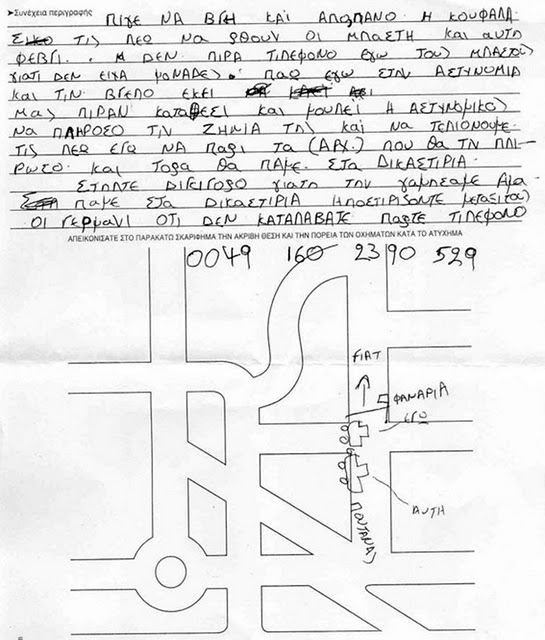 ➤Συνέχεια περιγραφής
ΠΙΓΕ ΝΑ ΒΓΗ ΚΑΙ ΑΠΩΠΑΝΟ Η ΚΟΥΦΑΛΑ
ΤΙΣ ΛΕΩ ΝΑ ΡΘΟΥΝ ΟΙ ΜΠΑΣΤΗ ΚΑΙ ΑΥΤΗ
ΦΕΒΓΙ. ΔΕΝ ΠΙΡΑ ΤΙΛΕΦΟΝΟ ΕΓΩ ΤΟΥΣ ΜΠΑΣΤΟΥΣ
ΓΙΑΤΙ ΔΕΝ ΕΙΧΑ ΜΟΝΑΔΕΣ. ΠΑΩ ΕΓΩ ΣΤΙΝ ΑΣΤΥΝΟΜΙΑ
ΚΑΙ ΤΙΝ ΒΓΕΠΟ ΕΚΕΙ
ΜΑΣ ΠΙΡΑΝ ΚΑΤΑΘΕΣΙ ΚΑΙ ΜΟΥΛΕΙ Η ΑΣΤΥΝΟΜΙΚΟΣ
ΝΑ ΠΛΗΡΟΣΟ ΤΙΝ ΖΗΜΙΑ ΤΗΣ ΚΑΙ ΝΑ ΤΕΛΙΟΝΟΥΜΕ
ΤΙΣ ΛΕΩ ΕΓΩ ΝΑ ΠΑΡΙ ΤΑ (ΑΡΧ.) ΠΟΥ ΘΑ ΤΗ ΠΛΙ-
ΡΩΣΟ ΚΑΙ ΤΟΡΑ ΘΑ ΠΑΜΕ ΣΤΑ ΔΙΚΑΣΤΙΡΙΑ.
ΣΤΙΛΤΕ ΔΙΓΙΓΟΡΟ ΓΙΑΤΙ ΤΗΝ ΓΑΜΗΣΑΜΕ ΑΜΑ
ΠΑΜΕ ΣΤΑ ΔΙΚΑΣΤΙΡΙΑ
ΟΙ ΓΕΡΜΑΝΙ ΟΤΙ ΔΕΝ ΚΑΤΑΛΑΒΑΤΕ ΠΑΡΤΕ ΤΙΛΕΦΟΝΟ
ΑΠΕΙΚΟΝΙΣΑΤΕ ΣΤΟ ΠΑΡΑΚΑΤΩ ΣΚΑΡΙΦΗΜΑ ΤΗΝ ΑΚΡΙΒΗ ΘΕΣΗ ΚΑΙ ΤΗΝ ΠΟΡΕΙΑ ΤΩΝ ΟΧΗΜΑΤΩΝ ΚΑΤΑ ΤΟ ΑΤΥΧΗΜΑ
0049 160 2390 529
FIAT
ΦΑΝΑΡΙΑ
ΕΓΩ
ΑΥΤΗ
ΠΟΥΤΑΝΑ